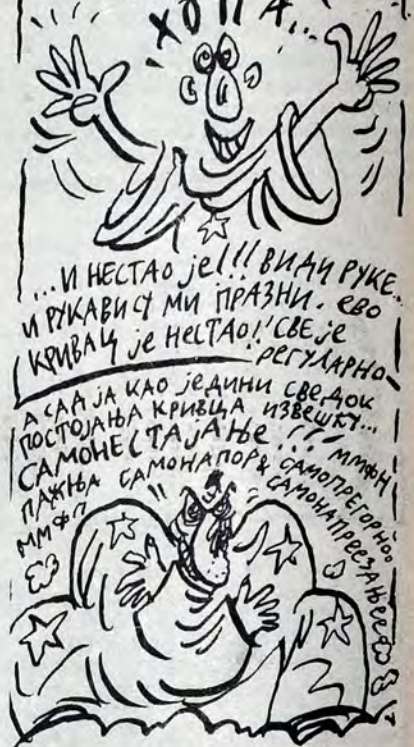 ХОПА...
...И НЕСТАО јЕ!!! ВИДИ РУКЕ...
И РУКАВИ СУ МИ ПРАЗНИ. ЕВО
КРИВАЦ јЕ НЕСТАО!! СВЕ јЕ
РЕГУЛАРНО
А САД јА КАО јЕДИНИ СВЕДОК
ПОСТОјАЊА КРИВЦА ИЗВЕШЋУ...
САМОНЕСТАјАЊЕ!!!
ПАЖЊА САМОНАПОР& САМОПРЕГОРНОО
ММФП
ММФН
САМОНАПРЕЕЗАЊЕЕЕ